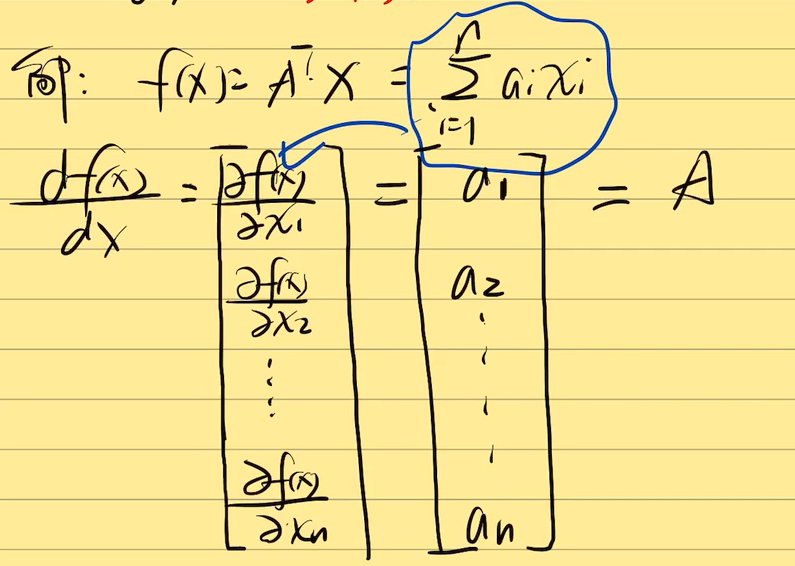 f(x) = Aᵀ X = \sum_{i=1}^{n} a_i x_i
\frac{df(x)}{dX} = \begin{bmatrix} \frac{∂f(x)}{∂x_1} \\ \frac{∂f(x)}{∂x_2} \\ \vdots \\ \frac{∂f(x)}{∂x_n} \end{bmatrix} = \begin{bmatrix} a_1 \\ a_2 \\ \vdots \\ a_n \end{bmatrix} = A